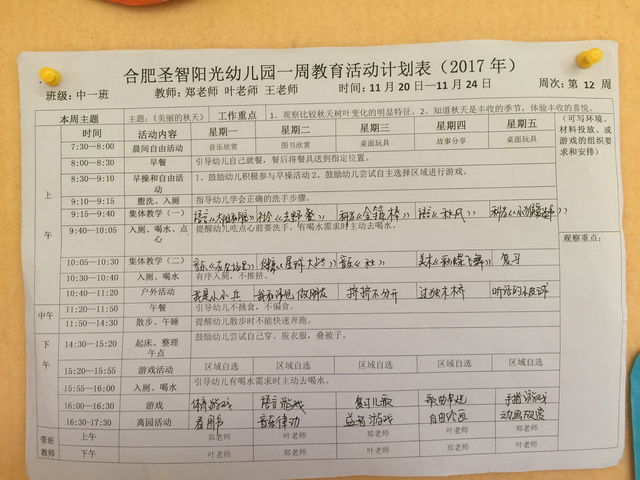 合肥圣智阳光幼儿园一周教育活动计划表（2017 年）
班级：中一班 教师：郑老师 叶老师 王老师 时间：11 月 20 日—11 月 24 日 周次：第 12 周
本周主题 主题：《美丽的秋天》 工作重点 1、观察比较秋天树叶变化的明显特征。2、知道秋天是丰收的季节，体验丰收的喜悦。
时间 活动内容 星期一 星期二 星期三 星期四 星期五 （可写环境、材料投放、或游戏的组织要求和安排）
上午
7:30—8:00 晨间自由活动 音乐欣赏 图书欣赏 桌面玩具 故事分享 桌面玩具
8:00—8:30 早餐 引导幼儿自己就餐，餐后将餐具送到指定位置。
8:30—9:10 早操和自由活动 1、鼓励幼儿积极参与早操活动 2、鼓励幼儿尝试自主选择区域进行游戏。
9:10—9:15 盥洗、入厕 指导幼儿学会正确的洗手步骤。
9:15—9:40 集体教学（一） 语言 社会《去野餐》 科学《金箍棒》 语言《秋风》 科学
9:40—10:05 入厕、喝水、点心 提醒幼儿吃点心前要洗手，有喝水需求时主动去喝水。
观察重点：
10:05—10:30 集体教学（二） 音乐 健康 音乐《秋》 美术《彩蝶飞舞》 复习
10:30—10:40 入厕、喝水 有序入厕，不推挤。
10:40—11:20 户外活动 我是小小兵 我和球儿做朋友 摔摔不分开 过独木桥 听话的小皮球
中午
11:20—11:50 午餐 引导幼儿不挑食，不偏食。
11:50—14:30 散步、午睡 提醒幼儿散步时不能快速奔跑。
下午
14:30—15:20 起床、整理午点 鼓励幼儿尝试自己穿、脱衣服，叠被子。
15:20—15:55 游戏活动 区域自选 区域自选 区域自选 区域自选 区域自选
15:55—16:00 入厕、喝水 引导幼儿有喝水需求时主动去喝水。
16:00—16:30 游戏 体育游戏 语言游戏 复习儿歌 歌曲串烧 手指游戏
16:30—17:30 离园活动 看图书 音乐律动 益智游戏 自由绘画 动画欣赏
带班教师 上午 郑老师 叶老师 郑老师 叶老师 郑老师
下午 叶老师 郑老师 叶老师 郑老师 叶老师